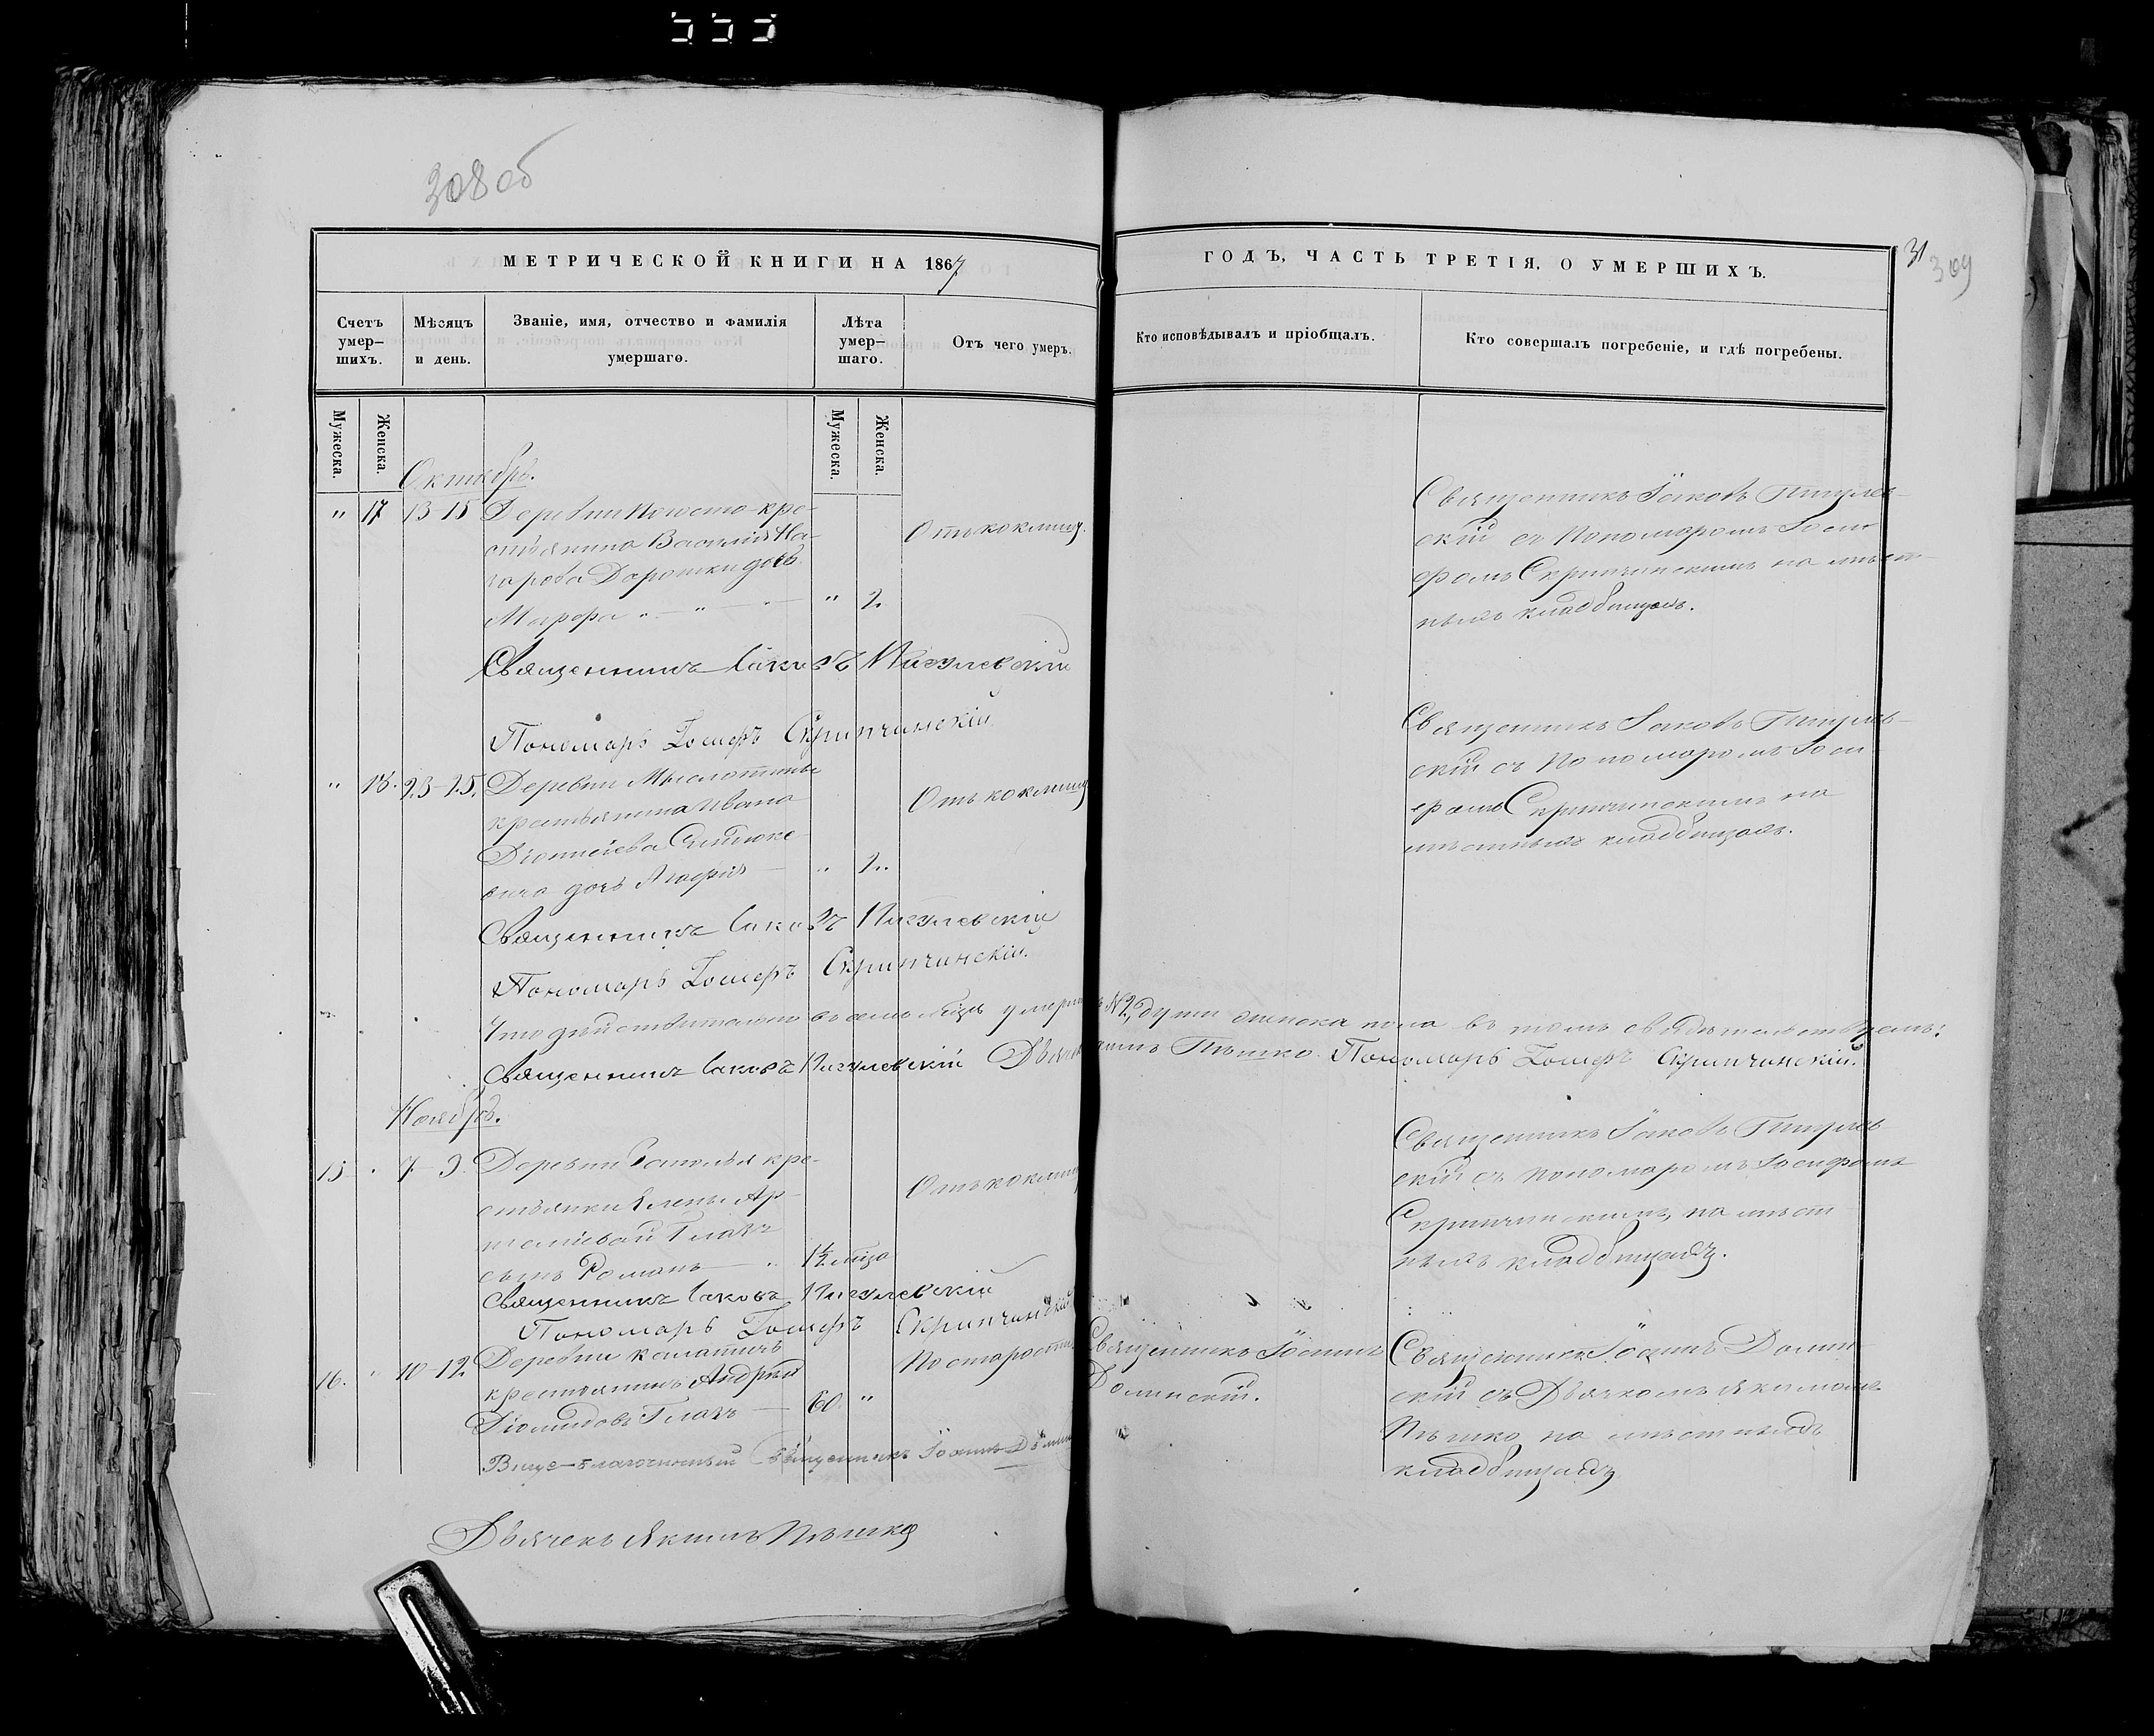 555
308 об
МЕТРИЧЕСКОЙ КНИГИ НА 1867
ГОДЪ, ЧАСТЬ ТРЕТІЯ, О УМЕРШИХЪ.
31
309
Счетъ умер-шихъ.
Мѣсяцъ и день.
Званіе, имя, отчество и фамилія умершаго.
Лѣта умер-шаго.
Отъ чего умеръ.
Кто исповѣдывалъ и пріобщалъ.
Кто совершалъ погребеніе, и гдѣ погребены.
Мужеска.
Женска.
Мужеска.
Женска.
Октябрь.
" 17 13-15 Деревни кре-
стьянина Василія На-
зарова дочь
Марфа " — " — " — " 2.
Отъ коклюша.
Священникъ Іаковъ Пигулев-
скій съ Пономаромъ Іоси-
фомъ Скрипчинскимъ на мѣст-
ныхъ кладбищахъ.
Священникъ Іаковъ Пигулевскій
Пономарь Іосифъ Скрипчинскій
" 18. 23-25. Деревни Мыслотины
крестьянина Ивана
Діонисіева
вича дочь — " 2.
Отъ коклюша
Священникъ Іаковъ Пигулев-
скій съ Пономаромъ Іоси-
фомъ Скрипчинскимъ на
мѣстныхъ кладбищахъ.
Священникъ Іаковъ Пигулевскій
Пономарь Іосифъ Скрипчинскій.
Что дѣйствительно въ семъ мѣсяцѣ умерло №2, души женска пола въ томъ свидѣтельствуемъ:
Священникъ Іаковъ Пигулевскій Дьячокъ Якимъ Пѣшко. Пономарь Іосифъ Скрипчинскій.
Ноябрь.
15 " 7-9. Деревни кре-
стьянки Елены Ар-
Глазъ
сынъ Романъ — " 1½ мѣсяца
Отъ коклюша
Священникъ Іаковъ Пигулев-
скій съ пономаромъ Іосифомъ
Скрипчинскимъ, на мѣст-
ныхъ кладбищахъ.
Священникъ Іаковъ Пигулевскій
Пономарь Іосифъ Скрипчинскій
16. " 10-12 Деревни
крестьянинъ Андрей
Діомидовъ Глазъ — 60. "
По старости
Священникъ Іоаннъ
Долинскій.
Священникъ Іоаннъ Долин-
скій съ Дьячкомъ Якимомъ
Пѣшко на мѣстныхъ
кладбищахъ
Вице-благочинный Священникъ Іоаннъ Долинскій
Дьячекъ Якимъ Пѣшко